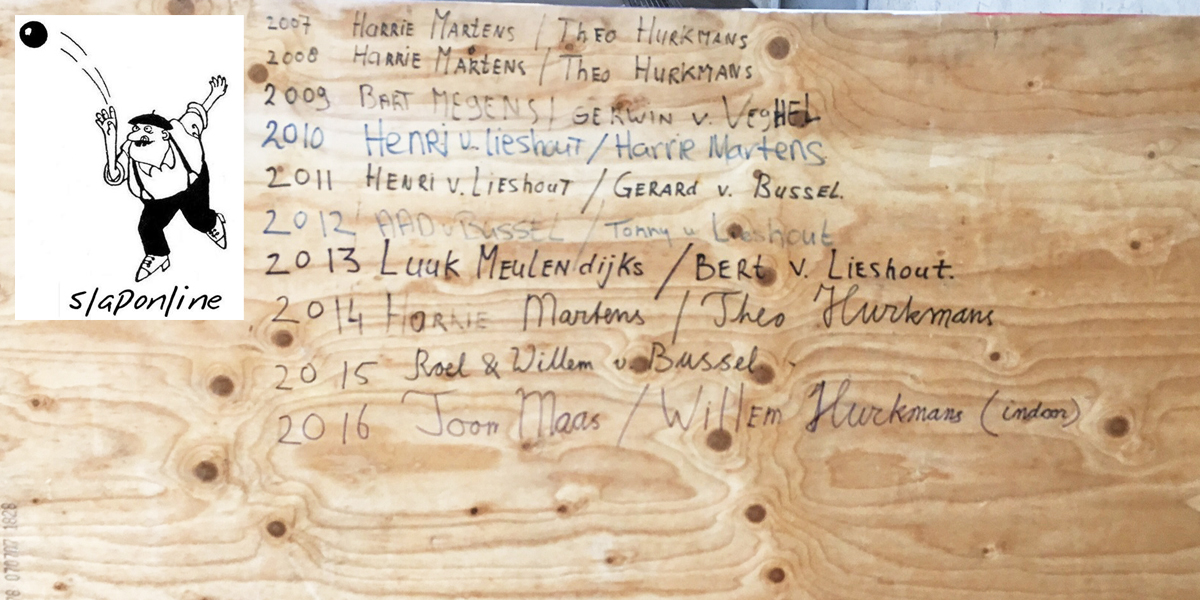 2007 Harrie Martens / Theo Hurkmans
2008 Harrie Martens / Theo Hurkmans
2009 Bart Megens / Gerwin v. Veghel
2010 Henri v. Lieshout / Harrie Martens
2011 Henri v. Lieshout / Gerard v. Bussel.
2012 AAD v Bussel / Tonny v Lieshout
2013 Luuk Meulendijks / Bert v. Lieshout.
2014 Harrie Martens / Theo Hurkmans
2015 Roel & Willem v. Bussel.
2016 Toon Maas / Willem Hurkmans (indoor)
slaponline